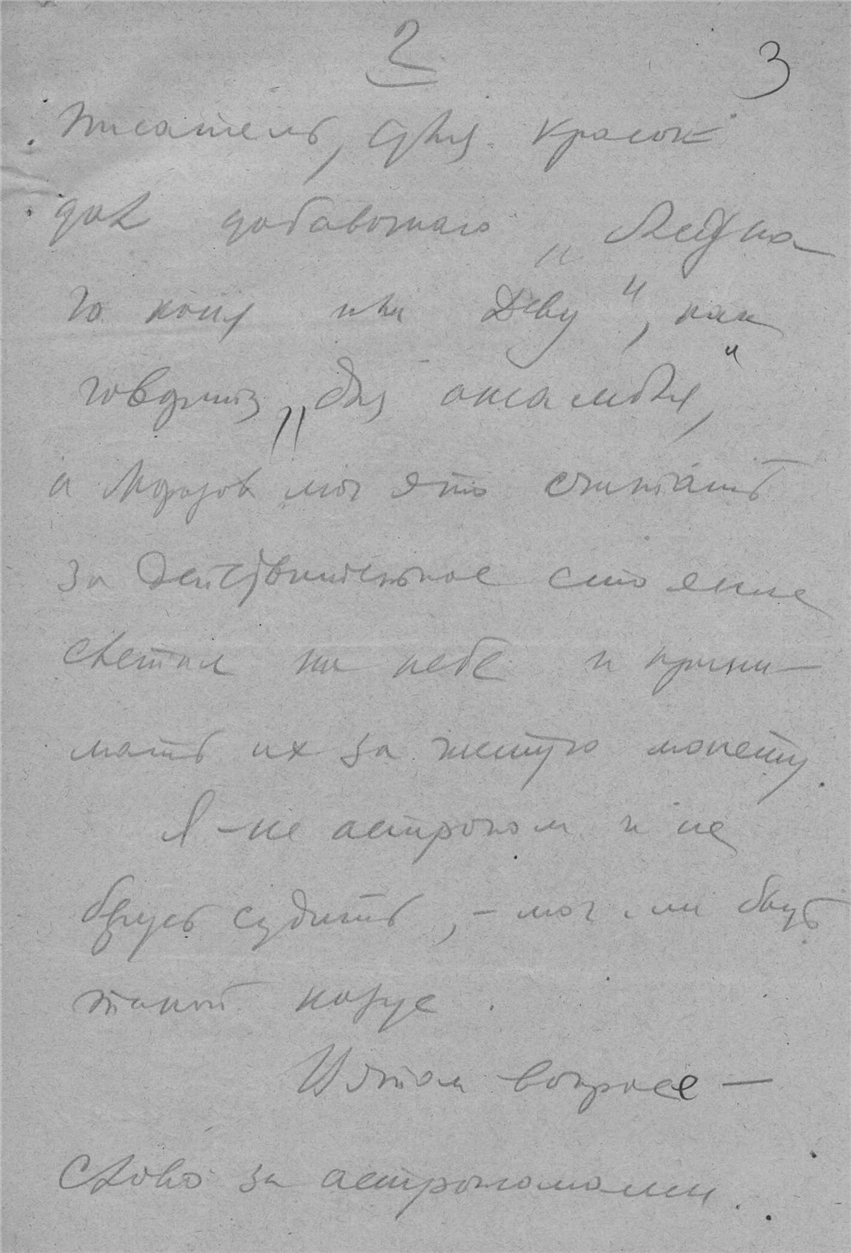 2
3
Писатель, для красок
для добавочного „Бледна
го коня или Деву“, как
говорят, „для ансамбля,“
а Морозов мог это считать
за действительное стояние
светил на небе и прини-
мать их за чистую монету.
Я не астроном и не
берусь судить, – мог ли быть
такой казус.
В этом вопросе —
слово за астрономами.